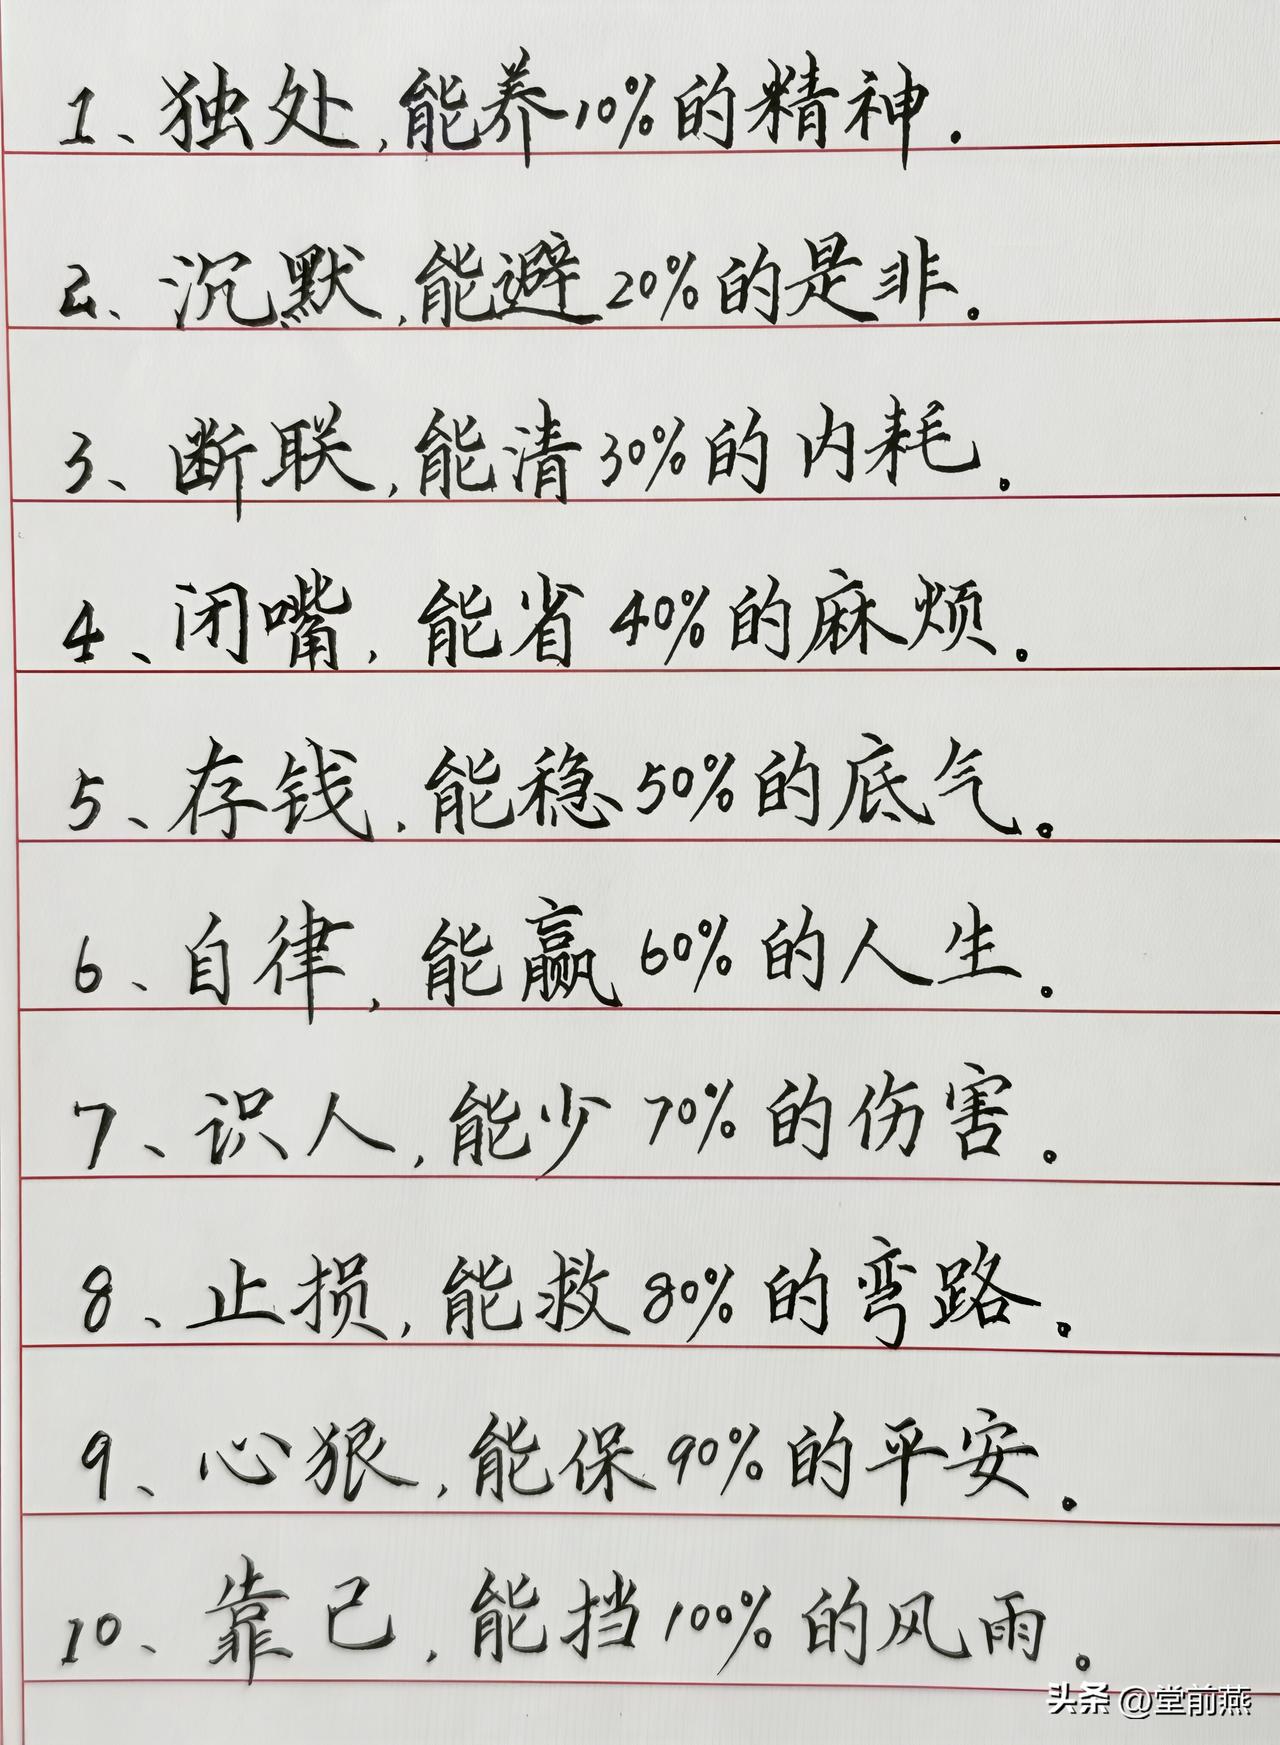 1、独处,能养10%的精神.
2、沉默,能避20%的是非。
3、断联,能清30%的内耗。
4、闭嘴,能省40%的麻烦。
5、存钱,能稳50%的底气。
6、自律,能赢60%的人生。
7、识人,能少70%的伤害。
8、止损,能救80%的弯路。
9、心狠,能保90%的平安。
10、靠己,能挡100%的风雨。
头条 @堂前燕